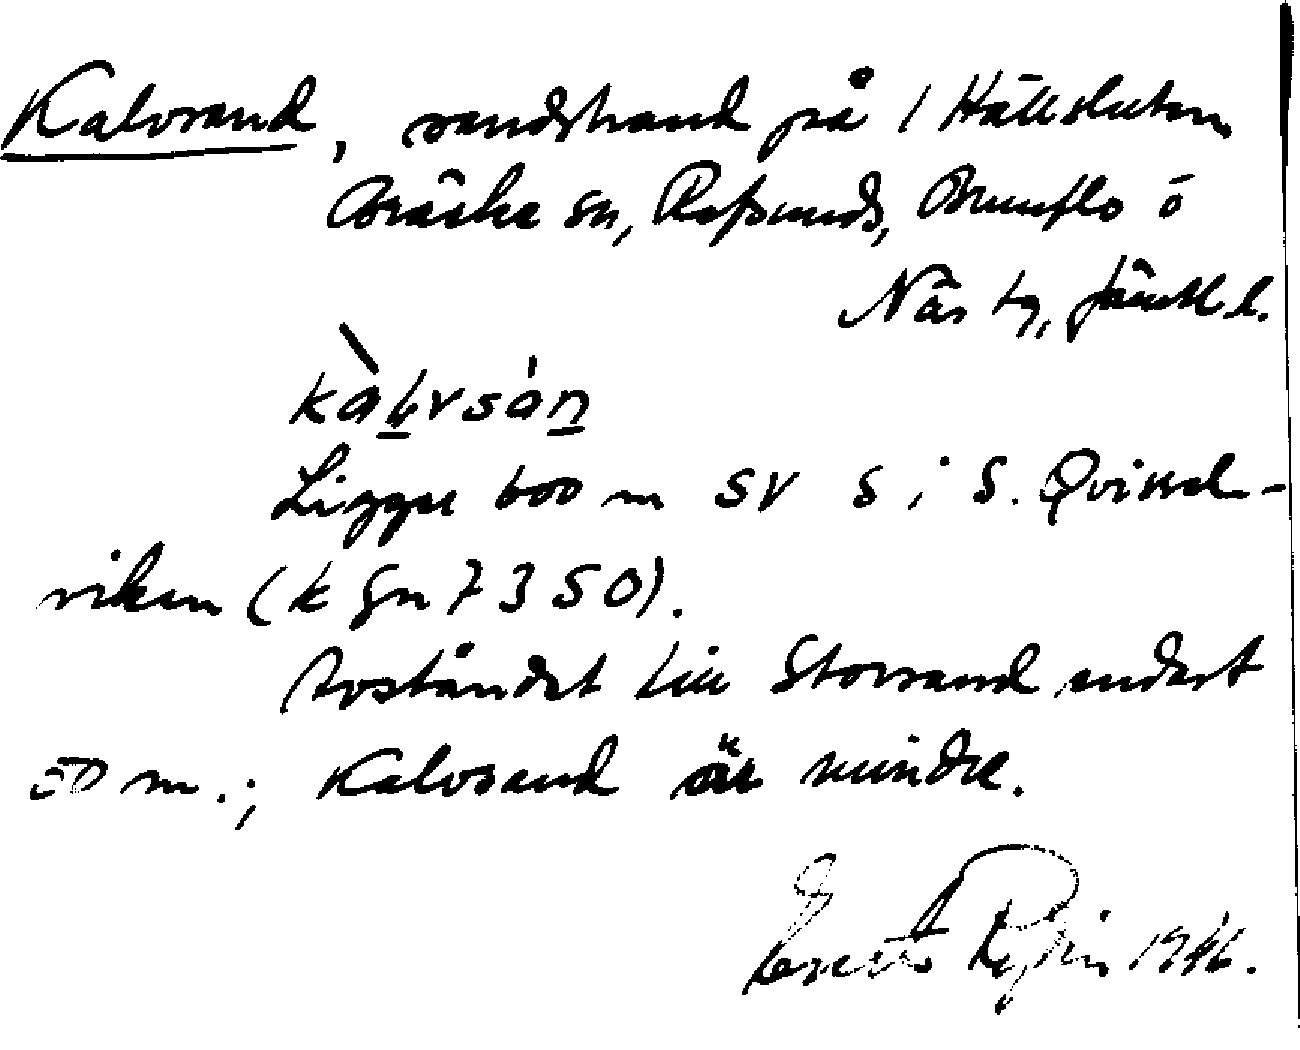 Kalvsand, sandstrand på 1 Hällsluten
Bräcke sn, Refsunds, Brunflo o
Näs tg, Jämtl. l.
kàlvsán
Ligger 600 m SV S i S. Qvissel-
viken (k gn 7350).
Avståndet till Storsand endast
50 m.; Kalvsand är mindre.
1946.